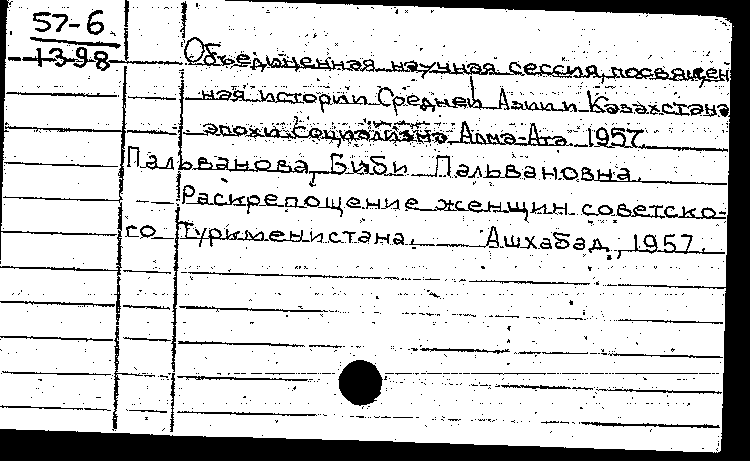 57-6
1398
Объединенная научная сессия, посвящен
ная истории Средней Азии и Казахстана
эпохи социализма Алма-Ата 1957
Пальванова, Биби Пальвановна.
Раскрепощение женщин советско-
го Туркменистана. Ашхабад, 1957.